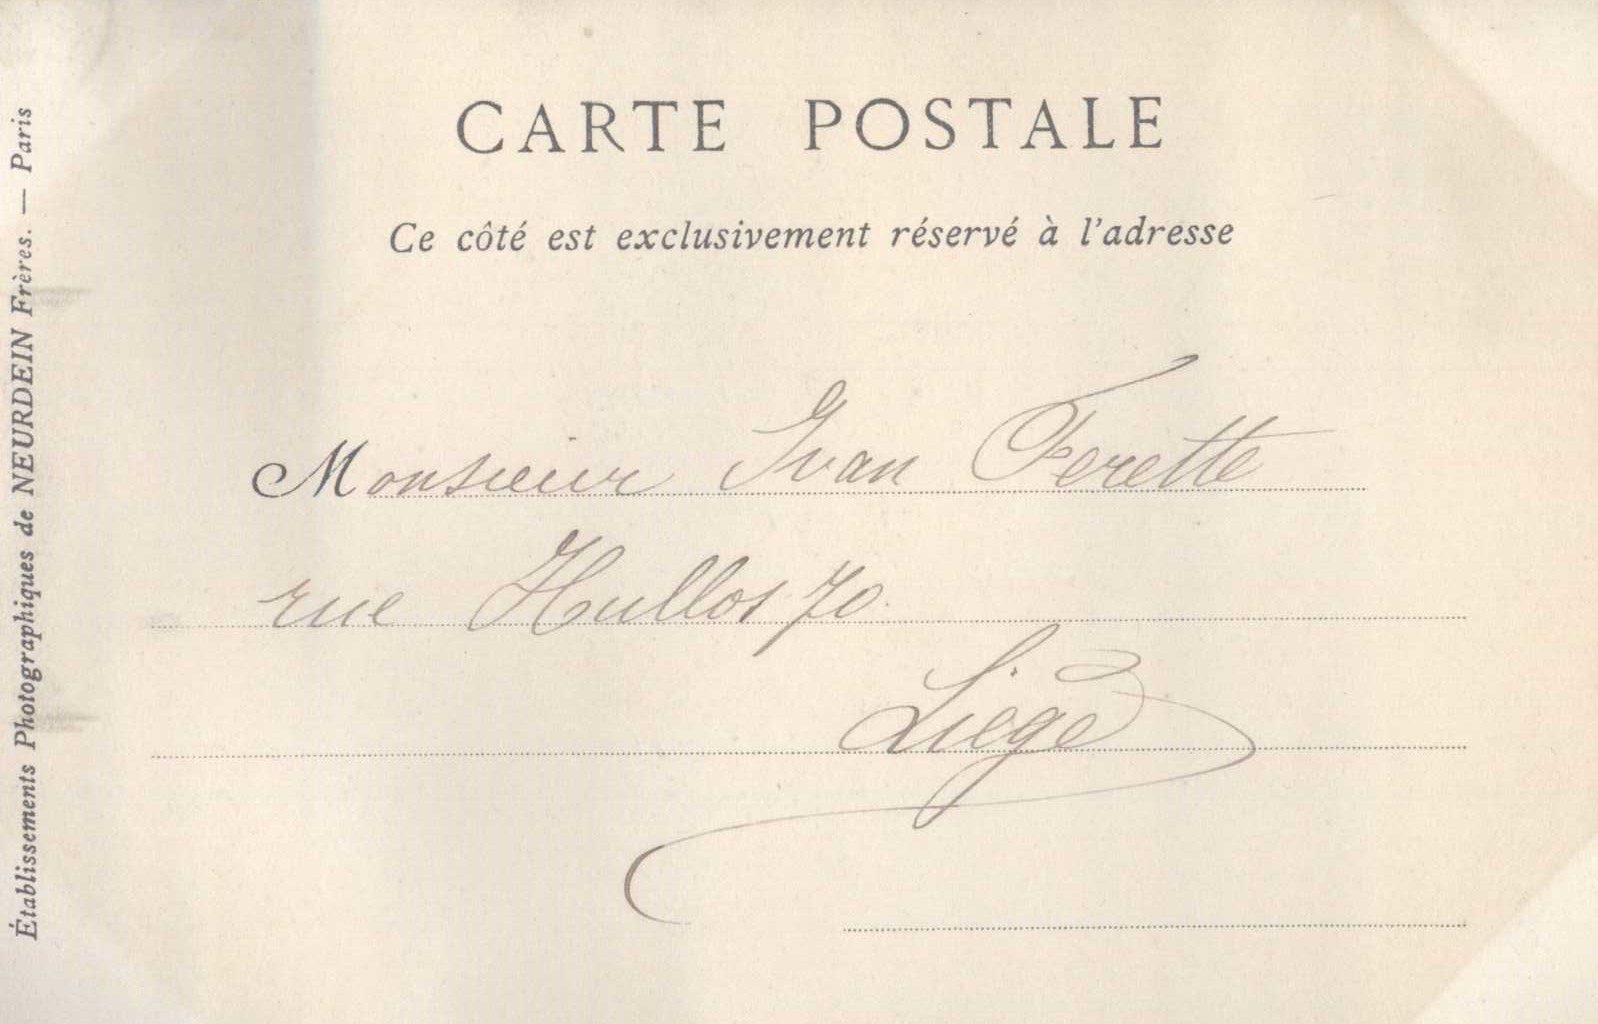 CARTE POSTALE
Ce côté est exclusivement réservé à l'adresse
Monsieur Ivan Ferette
rue Hullos 70.
Liège
Établissements Photographiques de NEURDEIN Frères. — Paris